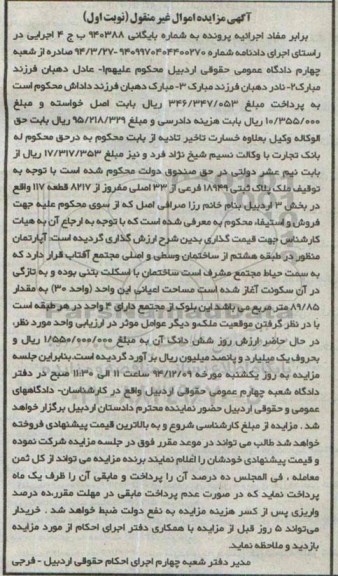 آگهی مزایده اموال غیر منقول (نوبت اول)
برابر مفاد اجرائیه پرونده به شماره بایگانی ۹۴۰۳۸۸ ب ج ۴ اجرایی در
راستای اجرای دادنامه شماره ۹۴۰۹۹۷۰۴۰۴۴۰۰۲۷۰-۹۴/۳/۲۷ صادره از شعبه
چهارم دادگاه عمومی حقوقی اردبیل محکوم علیهم۱- عادل دهبان فرزند
مبارک۲- نادر دهبان فرزند مبارک ۳- مبارک دهبان فرزند داداش محکوم است
به پرداخت مبلغ ۳۴۶/۳۴۷/۰۵۳ ریال بابت اصل خواسته و مبلغ
۱۰/۳۵۵/۰۰۰ ریال بابت هزینه دادرسی و مبلغ ۹۵/۲۱۸/۳۲۹ ریال بابت حق
الوکاله وکیل بعلاوه خسارت تاخیر تادیه از بابت محکوم به درحق محکوم له
بانک تجارت با وکالت نسیم شیخ نژاد فرد و نیز مبلغ ۱۷/۳۱۷/۳۵۳ ریال از
بابت نیم عشر دولتی در حق صندوق دولت محکوم شده است با توجه به
توقیف ملک پلاک ثبتی ۱۸۹۴۹ فرعی از ۳۳ اصلی مفروز از ۸۲۱۷ قطعه ۱۱۷ واقع
در بخش ۳ اردبیل بنام خانم رزا صرافی اصل که از سوی محکوم علیه جهت
فروش و استیفاء محکوم به معرفی شده است که با توجه به ارجاع آن به هیات
کارشناس جهت قیمت گذاری بدین شرح ارزش گذاری گردیده است: آپارتمان
منظور در طبقه هشتم از ساختمان وسطی و اصلی مجتمع آفتاب قرار دارد که
به سمت حیاط مجتمع مشرف است ساختمان با اسکلت بتنی بوده و به تازگی
در آن سکونت آغاز شده است مساحت اعیانی این واحد (واحد ۳۰) به مقدار
۸۹/۸۵ متر مربع می باشد این بلوک از مجتمع دارای ۴ واحد در هر طبقه است
با در نظر گرفتن موقعیت ملک و دیگر عوامل موثر در ارزیابی واحد مورد نظر،
در حال حاضر ارزش روز شش دانگ آن به مبلغ ۱/۵۵۰/۰۰۰/۰۰۰ ریال و
بحروف یک میلیارد و پانصد میلیون ریال برآورد گردیده است. بنابراین جلسه
مزایده به روز یکشنبه مورخه ۹۴/۱۲/۰۹ ساعت ۱۱ الی ۱۱:۳۰ صبح در دفتر
دادگاه شعبه چهارم عمومی حقوقی اردبیل واقع در کارشناسان- دادگاههای
عمومی و حقوقی اردبیل حضور نماینده محترم دادستان اردبیل برگزار خواهد
شد . مزایده از مبلغ کارشناسی شروع و به بالاترین قیمت پیشنهادی فروخته
خواهد شد طالب می تواند در موعد مقرر فوق در جلسه مزایده شرکت نموده
و قیمت پیشنهادی خودشان را اعلام نمایند برنده مزایده می تواند از کل ثمن
معامله ، فی المجلس ده درصد آن را پرداخت و مابقی آن را ظرف یک ماه
پرداخت نماید که در صورت عدم پرداخت مابقی در مهلت مقرر،ده درصد
واریزی پس از کسر هزینه مزایده به نفع دولت ضبط خواهد شد . خریدار
می‌تواند ۵ روز قبل از مزایده با همکاری دفتر اجرای احکام از مورد مزایده
بازدید و ملاحظه نماید.
مدیر دفتر شعبه چهارم اجرای احکام حقوقی اردبیل - فرجی